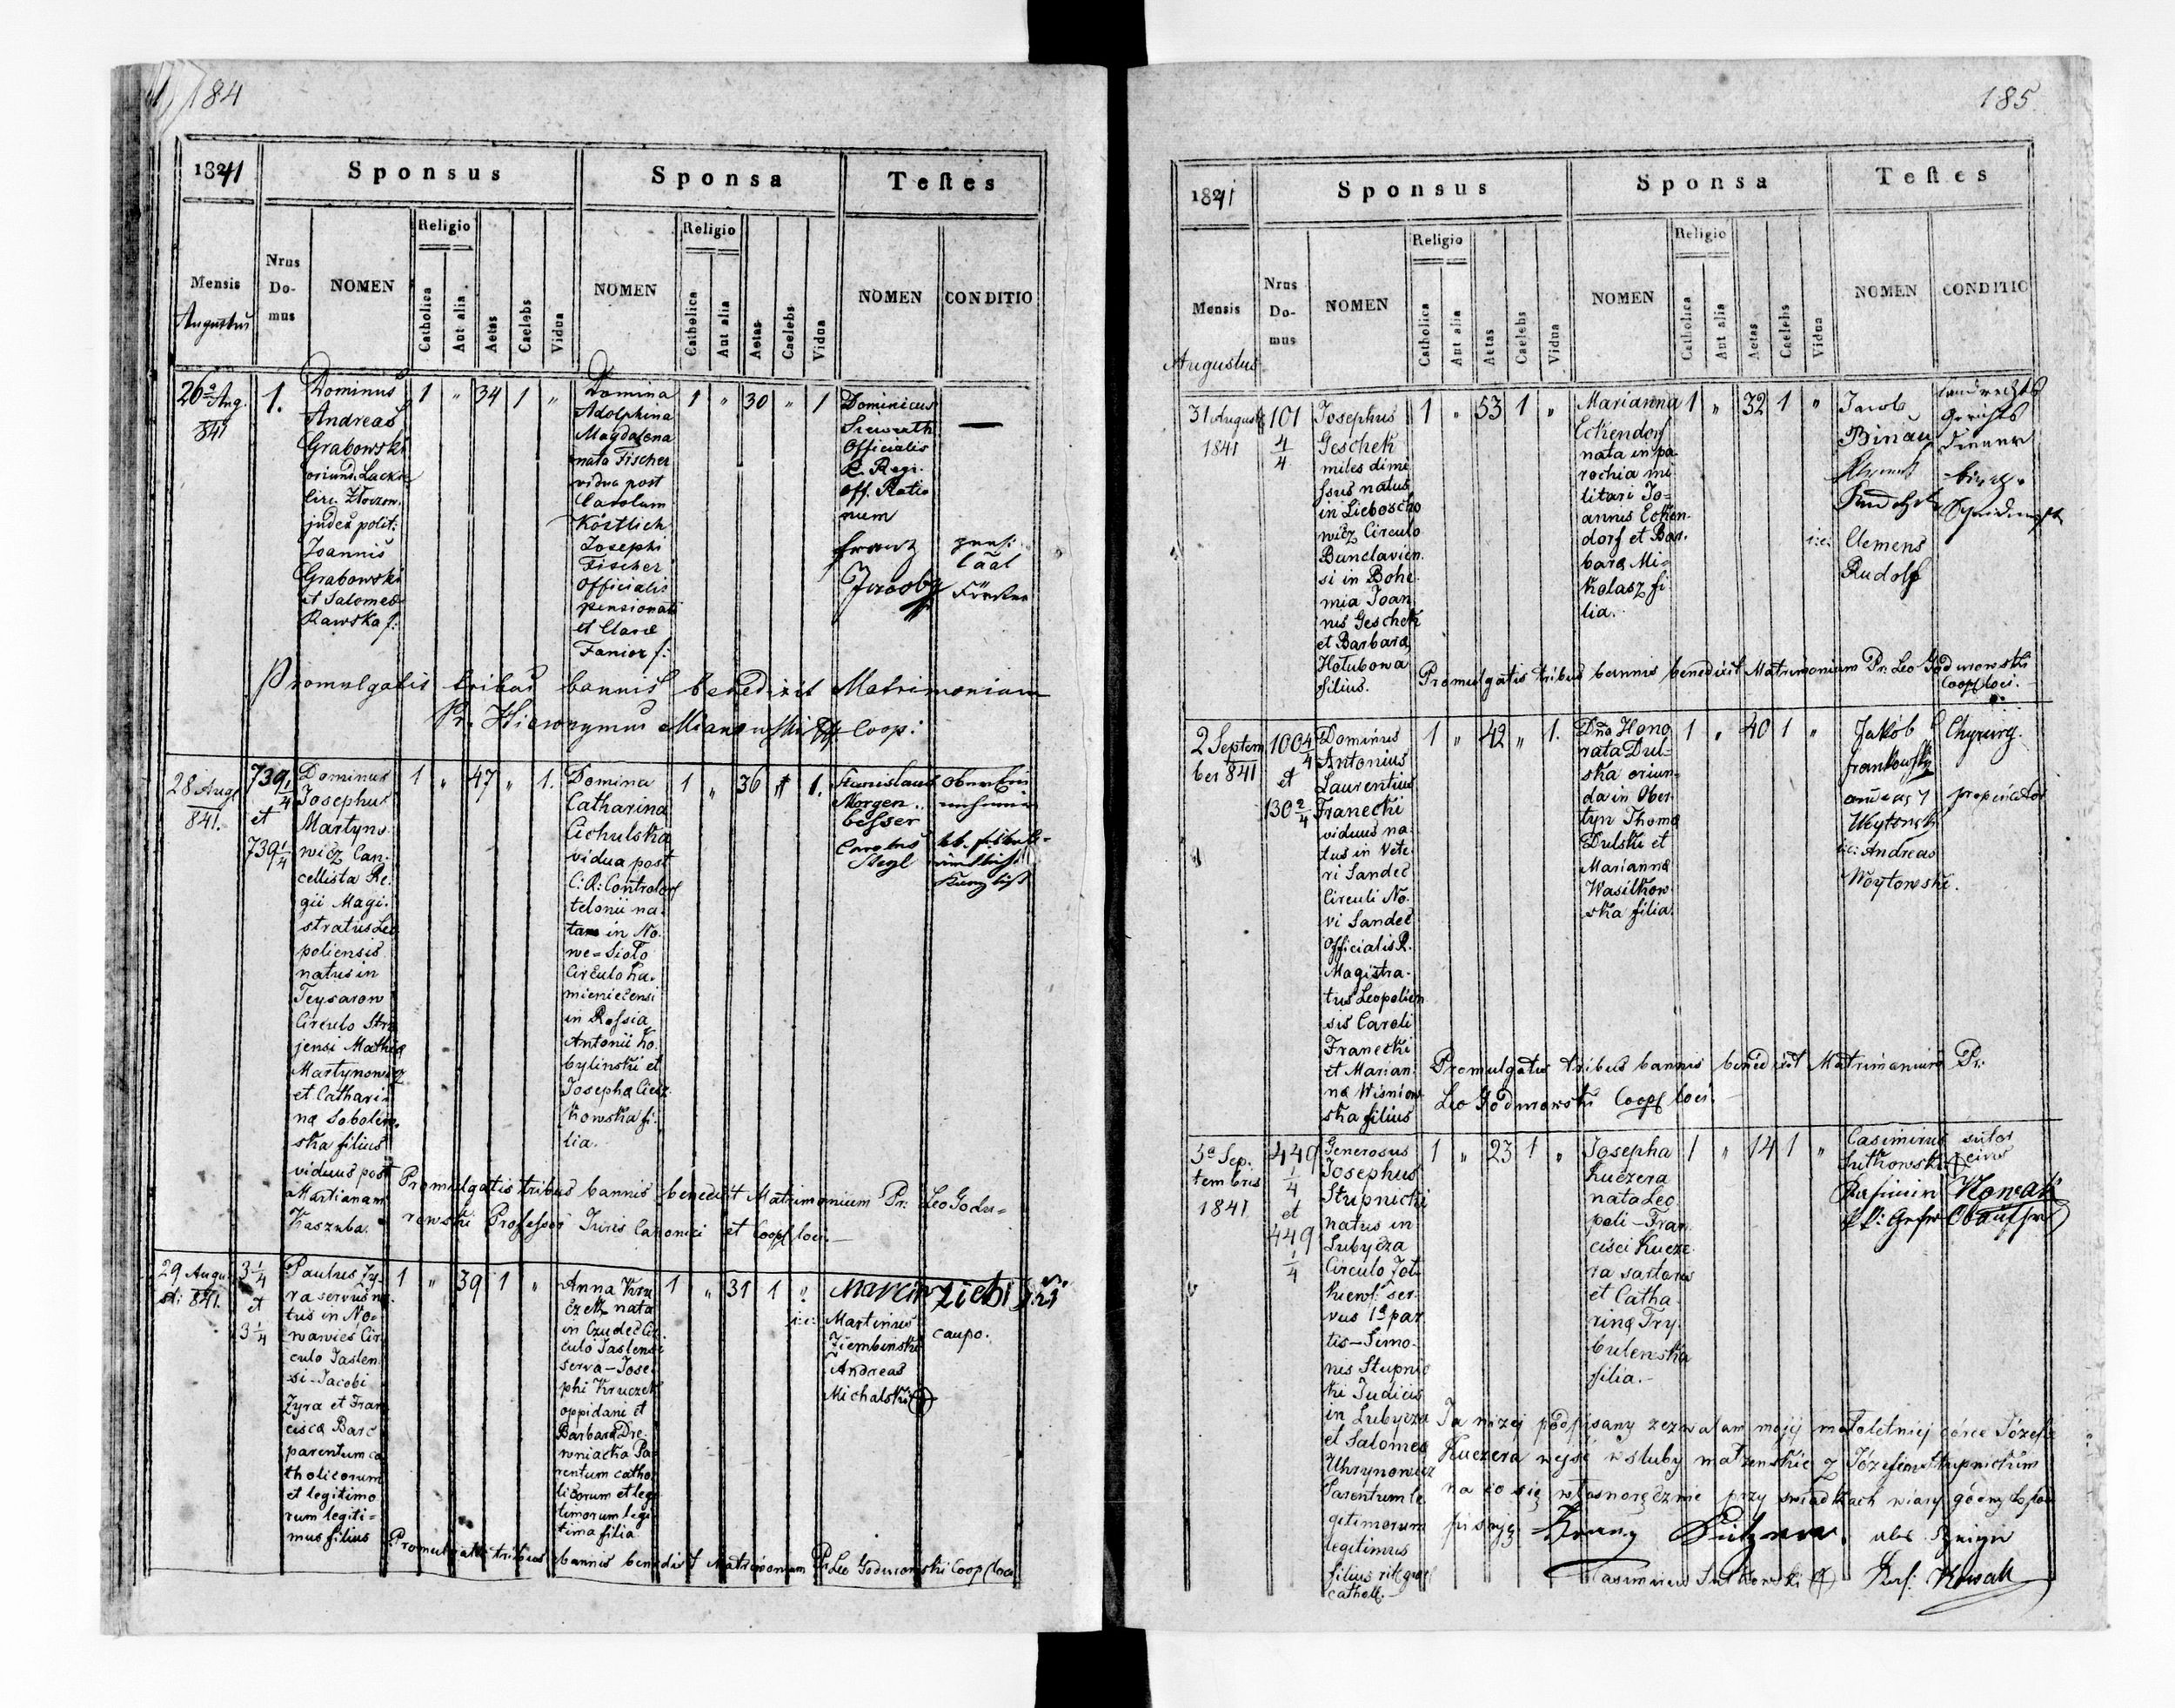 184
1841
Sponsus
Sponsa
Testes
Mensis
Augustus
Nrus
Do-
mus
NOMEN
Religio
Catholica
Aut alia
Aetas
Caelebs
Vidua
NOMEN
Religio
Catholica
Aut alia
Aetas
Caelebs
Vidua
NOMEN
CONDITIO
26a Aug.
841
1.
Dominus
Andreas
Grabowski
oriund. Lacko
Circ. Złoczow.
judex polit:
Joannis
Grabowski
et Salomea
Rawska f:
1 " 34 1 "
Domina
Adolphina
Magdalena
nata Fischer
vidua post
Carolum
Köstlich
Josephi
Fischer
Officialis
pensionati
et Clara
Fanior f:
1 " 30 " 1
Dominicus
Officialis
off. Ratio
num
Franz
pens:
Promulgatis tribus bannis benedixit Matrimonium
Pr. Hieronymus Mianowski Coop:
28 Aug
841.
739 1/4
et
739 1/4
Dominus
Josephus
Martyno
wicz Can-
cellista Re-
gii Magi-
stratus Leo
poliensis
natus in
Teysarow
Circulo Stry
jensi Mathia
Martynowicz
et Cathari-
na Sobolew-
ska filius
viduus post
Martianam
Kaszuba.
1 " 47 " 1.
Domina
Catharina
Cichulska
vidua post
C: R: Controlor
telonii na-
tam in No-
we=Sioło
Circulo Ka-
mieniecensi
in Rossia
Antonii Ko-
bylinski et
Josepha Ciesz
kowska fi-
lia.
1 " 36 " 1.
Stanislaus
Morgen-
besser
Carolus
Stegl
Promulgatis tribus bannis benedixit Matrimonium Pr: Leo Godu=
rowski Professor Juris Canonici et Coop loci.
29 Augu
sti 841.
3 1/4
et
3 1/4
Paulus Zy-
ra servus na-
tus in No-
wawieś Cir
culo Jaslen
si - Jacobi
Zyra et Fran
cisca Barc
parentum ca
tholicorum
et legitimo
rum legiti=
mus filius
1 " 39 1 "
Anna Kru
czek nata
in Czudec Cir
culo Jaslensi
serva - Jose-
phi Kruczek
oppidani et
Barbara Dre-
wniacka Pa-
rentum catho
licorum et legi
timorum legi
tima filia
1 " 31 1 "
Marcin Ziębiński
i:e: Martinus
Ziembinski
caupo.
Andreas
Michalski
Promulgatis tribus bannis benedixit Matrimonium Pr Leo Godurowski Coop loci
185
1841
Sponsus
Sponsa
Testes
Mensis
Augustus
Nrus
Do-
mus
NOMEN
Religio
Catholica
Aut alia
Aetas
Caelebs
Vidua
NOMEN
Religio
Catholica
Aut alia
Aetas
Caelebs
Vidua
NOMEN
CONDITIO
31 August
1841
101
4/4
Josephus
Geschek
miles dimi
ssus natus
in Liboscho
wicz Circulo
Bunclavien-
si in Bohe-
mia Joan
nis Geschek
et Barbara
Hołubowa
filius.
1 " 53 1 "
Marianna
Eckendorf
nata in pa-
rochia mi
litari Jo=
annis Ecken-
dorf et Bar-
bara Mi-
kolasz fi-
lia.
1 " 32 1 "
Jacob
Binau
i:e: Clemens
Rudolf
Promulgatis tribus bannis benedixit Matrimonium Pr. Leo Godurowski
Coop loci.
2 Septem
ber 841
100 4/4
et
130 2/4
Dominus
Antonius
Laurentius
Franecki
viduus na-
tus in Vete-
ri Sandec
Circuli No-
vi Sandec
Officialis R.
Magistra-
tus Leopolien
sis Caroli
Franecki
et Marian-
na Wisniow
ska filius
1 " 42 " 1.
Dna Hono
rata Dul-
ska oriun-
da in Ober-
tyn Thoma
Dulski et
Marianna
Wasilkow-
ska filia.
1 " 40 1 "
Jakób
Frankowski
Chyrurg.
i:e: Andreas
Woytowski.
Promulgatis tribus bannis benedixit Matrimonium Pr:
Leo Godurowski Coop loci.
3a Sep-
tembris
1841
449
1/4
et
449
1/4
Generosus
Josephus
Stupnicki
natus in
Lubycza
Circulo Żoł-
kiew: ser-
vus 1a par
tis - Simo-
nis Stupnic
ki Judicis
in Lubycza
et Salomea
Uhrynowicz
Parentum le-
gitimorum
legitimus
filius rit. graec
cathol.
1 " 23 1 "
Josepha
Kuczera
nata Leo
poli - Fran
cisci Kucze-
ra sartoris
et Catha-
rina Try-
bulewska
filia.
1 " 14 1 "
Casimirus
Sutkowski
sutor
civis
Nowak
Ja niżej podpisany zezwalam mojej małoletniej córce Józefie
Kuczera wejść w śluby małżeńskie z Józefem Stupnickim
na co się własnoręcznie przy świadkach wiary godny
pisuję
Casimirus Sutkowski
Nowak